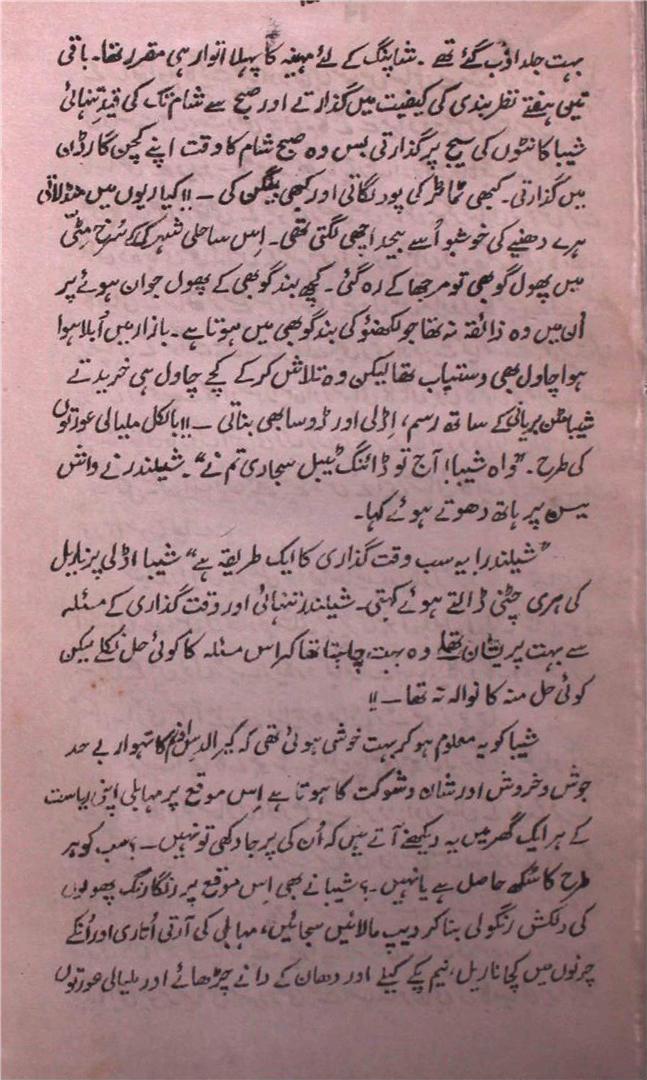 بہت جلد اوب گئے تھے ۔ شاپنگ کے لئے مہینہ کا پہلا اتوار ہی مقرر تھا۔ باقی
تین ہفتے نظر بندی کی کیفیت میں گذارتے اور صبح سے شام تک کی قیدِ تنہائی
شیبا کانٹوں کی سیج پر گذارتی بس وہ صبح شام کا وقت اپنے کچن گارڈن
میں گذارتی۔ کبھی ٹماٹر کی پود لگاتی اور کبھی بیگن کی ۔!! کیاریوں میں
ہرے دھنیے کی خوشبو اُسے بیحد اچھی لگتی تھی۔ اِس ساحلی شہر کی سُرخ مٹی
میں پھول گوبھی تو مرجھا کے رہ گئی۔ کچھ بند گوبھی کے پھول جوان ہوئے پر
اُن میں وہ ذائقہ نہ تھا جو لکھنؤ کی بند گوبھی میں ہوتا ہے۔ بازار میں اُبلا ہوا
ہوا چاول بھی دستیاب تھا لیکن وہ تلاش کر کے کچے چاول ہی خریدتے
شیبا مٹن بریانی کے ساتھ رسم، اِڈلی اور ڈوسا بھی بناتی ۔!! بالکل ملیالی عورتوں
کی طرح۔ "واہ شیبا! آج تو ڈائننگ ٹیبل سجادی تم نے"۔ شیلندر نے واش
بیسن پر ہاتھ دھوتے ہوئے کہا۔
"شیلندر! یہ سب وقت گذاری کا ایک طریقہ ہے" شیبا اڈلی پر ناریل
کی ہری چٹنی ڈالتے ہوئے کہتی۔ شیلندر تنہائی اور وقت گذاری کے مسئلہ
سے بہت پریشان تھا وہ بہت چاہتا تھا کہ اس مسئلہ کا کوئی حل نکلے لیکن
کوئی حل منہ کا نوالہ نہ تھا ۔!!
شیبا کو یہ معلوم ہو کر بہت خوشی ہوئی تھی کہ کیرالہ میں اونم کا تہوار بے حد
جوش و خروش اور شان و شوکت کا ہوتا ہے اِس موقع پر مہابلی اپنی ریاست
کے ہر ایک گھر میں یہ دیکھنے آتے ہیں کہ اُن کی پرجا دکھی تو نہیں ۔؟ سب کو ہر
طرح کا سُکھ حاصل ہے یا نہیں ۔؟ شیبا نے بھی اِس موقع پر رنگا رنگ پھولوں
کی دلکش رنگولی بنا کر دیپ مالائیں سجائیں، مہابلی کی آرتی اُتاری اور اُنکے
چرنوں میں کچا ناریل، نیم پکے کیلے اور دھان کے دانے چڑھائے اور ملیالی عورتوں